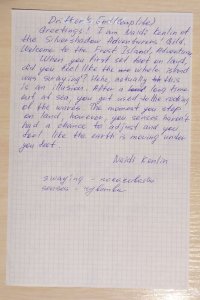 Drifter's, Tail (complete)
Greetings! I am Naidi Kenlin of
the Silvershadow Adventurers Gild.
Welcome to the Frost Island, Adventurer
When you first set foot on land,
did you feel like the whole island
was swaying? Hehe, actually this
is an illusion. After a long time
out at sea, you get used to the rocking
of the waves. The moment you step
on land, however, you senses haven't
had a chance to adjust and you
feel like the earth is moving under
you feet.
Naidi Kenlin
swaying -
senses -